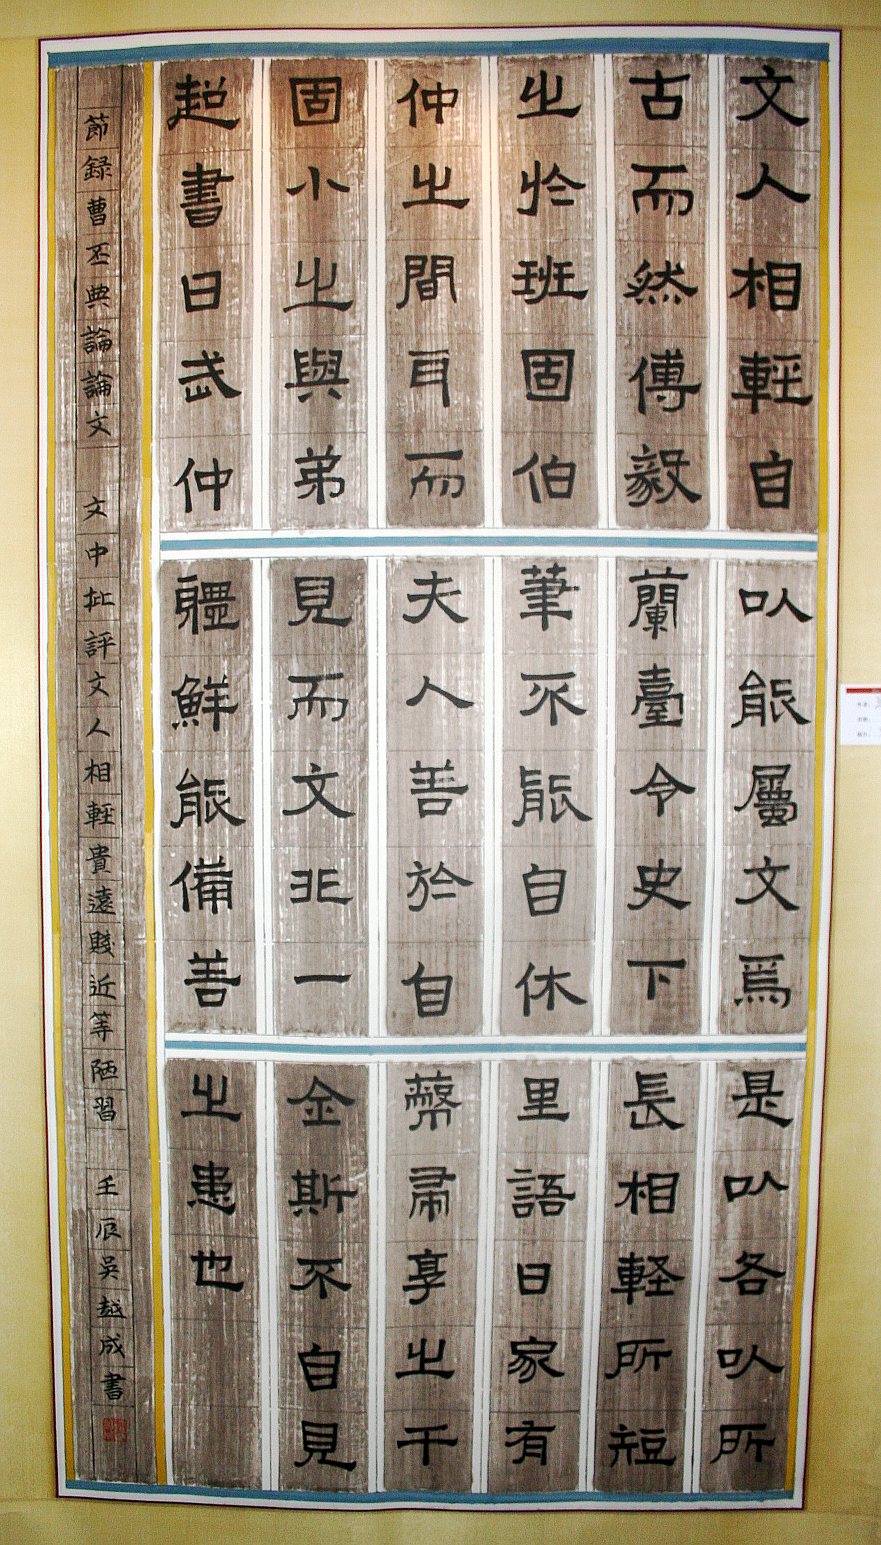 文人相輕自
古而然傅毅
之於班固伯
仲之間耳而
固小之與弟
超書曰武仲
以能屬文為
蘭臺令史下
筆不能自休
夫人善於自
見而文非一
體鮮能備善
是以各以所
長相軽所短
里語曰家有
弊帚享之千
金斯不自見
之患也
節録曹丕典論論文 文中批評文人相輕貴遠賤近等陋習 壬辰吳越成書